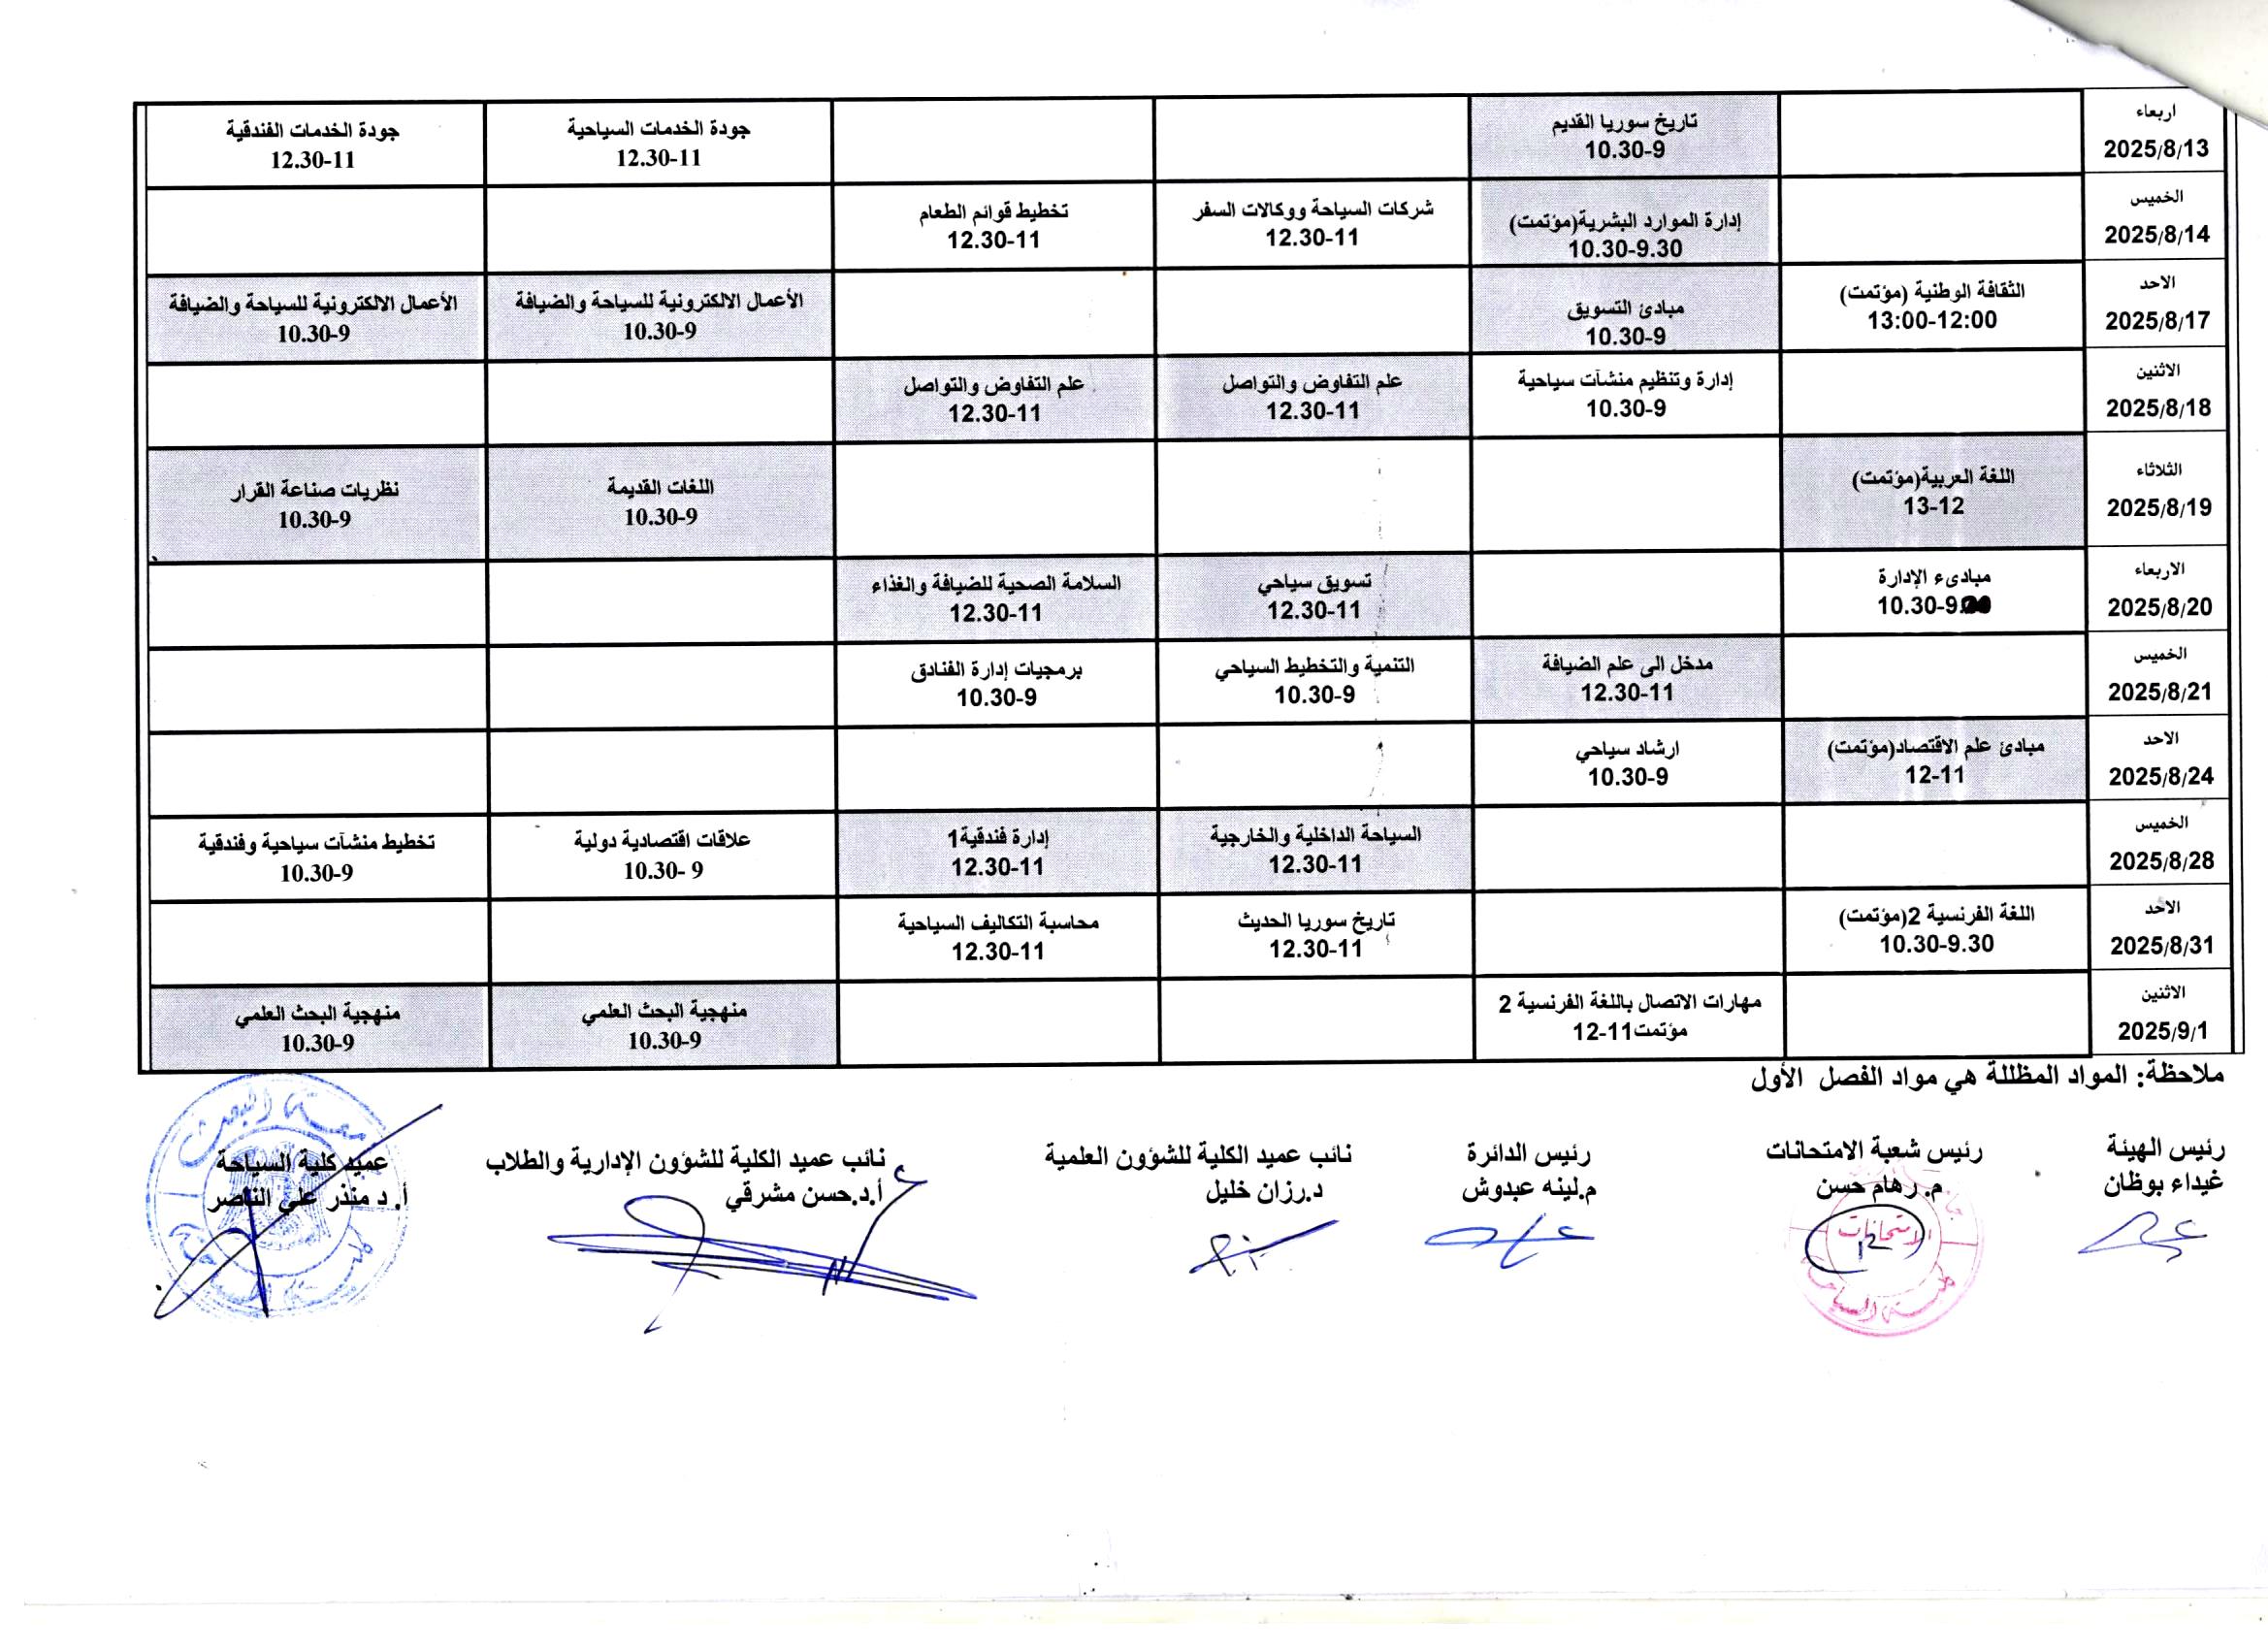 اربعاء
2025/8/13
تاريخ سوريا القديم
10.30-9
جودة الخدمات السياحية
12.30-11
جودة الخدمات الفندقية
12.30-11
الخميس
2025/8/14
إدارة الموارد البشرية(مؤتمت)
10.30-9.30
شركات السياحة ووكالات السفر
12.30-11
تخطيط قوائم الطعام
12.30-11
الاحد
2025/8/17
الثقافة الوطنية (مؤتمت)
13:00-12:00
مبادئ التسويق
10.30-9
الأعمال الالكترونية للسياحة والضيافة
10.30-9
الأعمال الالكترونية للسياحة والضيافة
10.30-9
الاثنين
2025/8/18
إدارة وتنظيم منشآت سياحية
10.30-9
علم التفاوض والتواصل
12.30-11
علم التفاوض والتواصل
12.30-11
الثلاثاء
2025/8/19
اللغة العربية(مؤتمت)
13-12
اللغات القديمة
10.30-9
نظريات صناعة القرار
10.30-9
الاربعاء
2025/8/20
مبادىء الإدارة
10.30-9
تسويق سياحي
12.30-11
السلامة الصحية للضيافة والغذاء
12.30-11
الخميس
2025/8/21
مدخل الى علم الضيافة
12.30-11
التنمية والتخطيط السياحي
10.30-9
برمجيات إدارة الفنادق
10.30-9
الاحد
2025/8/24
مبادئ علم الاقتصاد(مؤتمت)
12-11
ارشاد سياحي
10.30-9
الخميس
2025/8/28
السياحة الداخلية والخارجية
12.30-11
إدارة فندقية1
12.30-11
علاقات اقتصادية دولية
10.30- 9
تخطيط منشآت سياحية وفندقية
10.30-9
الاحد
2025/8/31
اللغة الفرنسية 2(مؤتمت)
10.30-9.30
تاريخ سوريا الحديث
12.30-11
محاسبة التكاليف السياحية
12.30-11
الاثنين
2025/9/1
مهارات الاتصال باللغة الفرنسية 2
مؤتمت11-12
منهجية البحث العلمي
10.30-9
منهجية البحث العلمي
10.30-9
ملاحظة: المواد المظللة هي مواد الفصل الأول
رئيس الهيئة
غيداء بوظان
رئيس شعبة الامتحانات
م. رهام حسن
رئيس الدائرة
م.لينه عبدوش
نائب عميد الكلية للشؤون العلمية
د.رزان خليل
نائب عميد الكلية للشؤون الإدارية والطلاب
أ.د.حسن مشرقي
عميد كلية السياحة
أ. د منذر علي الناصر
الامتحانات
كلية السياحة